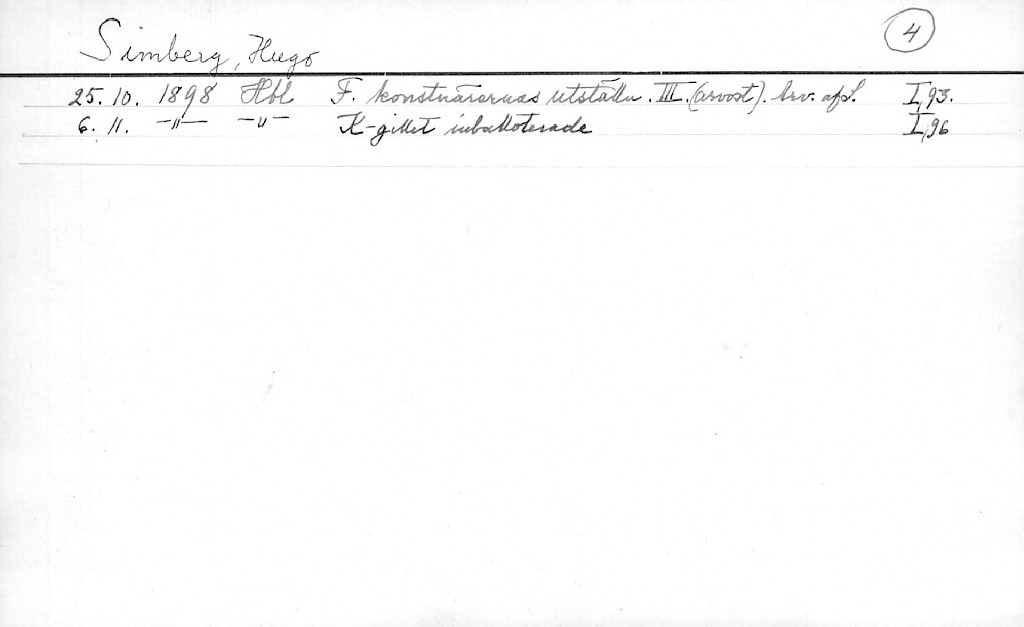 4
Simberg, Hugo
25. 10. 1898 Hbl F. konstnärernas utställn. III. (arvost). Arv. af S. I, 93.
6. 11. -"- -"- K-gillet inballoterade I, 96